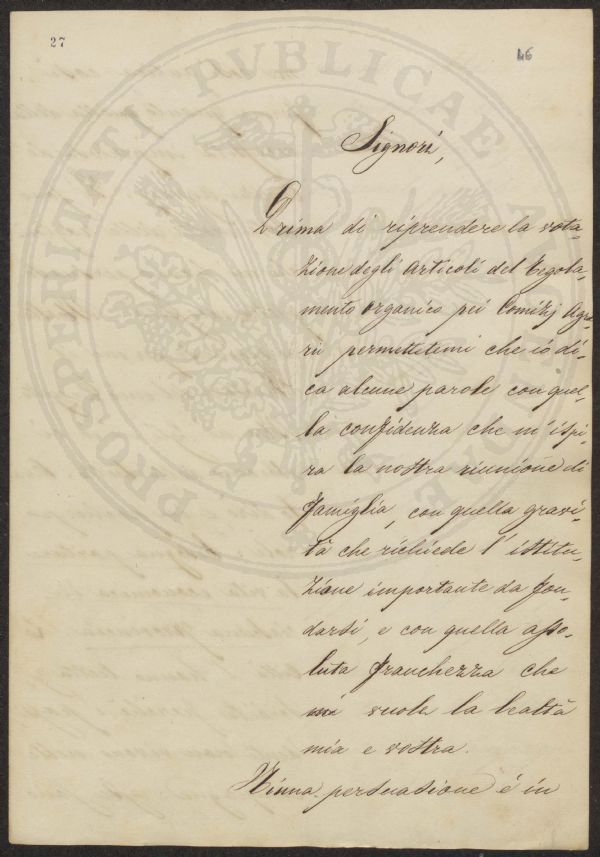 27
46
PROSPERITATI PUBLICAE AUGENDAE
Signori,
Prima di riprendere la vota-
zione degli articoli del Regola-
mento organico pei Comizj Agra-
rii permettetemi che io di-
ca alcune parole con quel-
la confidenza che m'ispi-
ra la nostra riunione di
famiglia, con quella gravi-
tà che richiede l'istitu-
zione importante da fon-
darsi, e con quella asso-
luta franchezza che
mi vuole la lealtà
mia e vostra.
Niuna persuasione é in